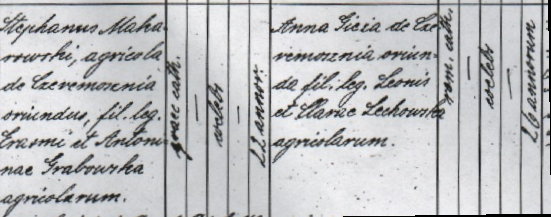 Stephanus Maka-
rowski, agricola
de Czeremosznia
oriundus, fil. leg.
Erasmi et Antoni-
nae Grabowska
agricolarum.
graec. cath.
—
coelebs
—
22 annor.
Anna Gicia de Cze-
remosznia oriun-
da fil. leg. Leonis
et Clarae Lechowska
agricolarum.
rom. cath.
—
coelebs
—
26 annorum